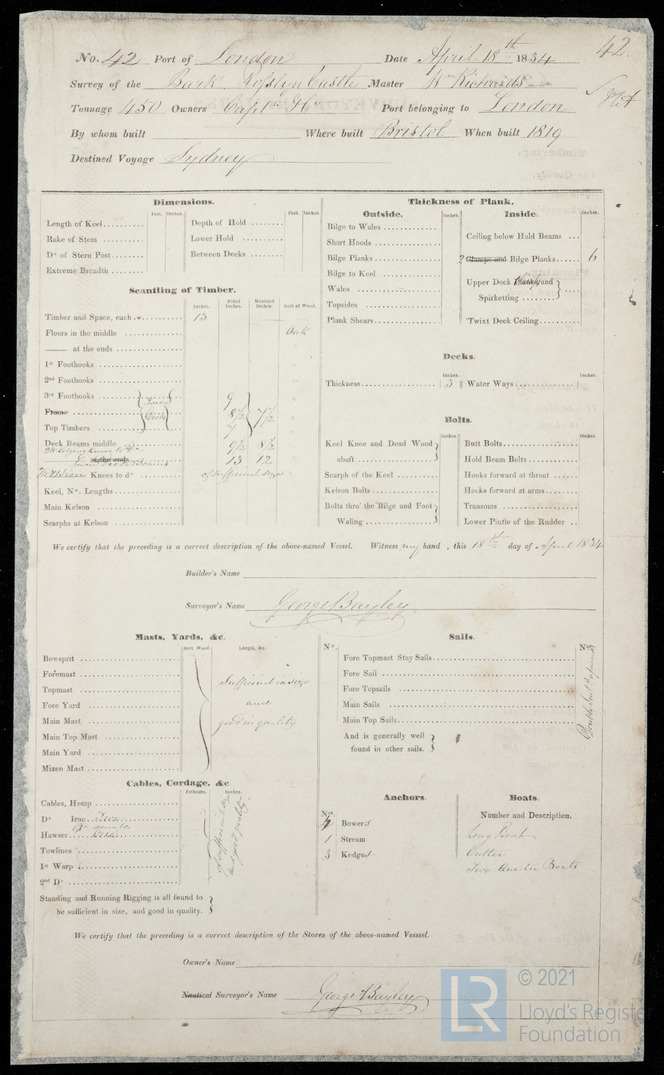 42.
No. 42 Port of London Date April 18th 1834
Survey of the Bark Rosslyn Castle Master Wm Richards
Tonnage 450 Owners Capt & Co Port belonging to London
By whom built Where built Bristol When built 1819
Destined Voyage Sydney
Dimensions.
Feet. Inches. Feet. Inches.
Length of Keel Depth of Hold
Rake of Stem Lower Hold
Do of Stern Post Between Decks
Extreme Breadth
Scantling of Timber.
Inches. Sided Inches. Moulded Inches. Sort of Wood.
Timber and Space, each 13
Floors in the middle Oak
—— at the ends
1st Foothooks
2nd Foothooks
3rd Foothooks 9
Frame 8½ 7½
Top Timbers 7
Deck Beams middle 9½ 8½
13 12
Knees to do of sufficient size
Keel, No. Lengths
Main Kelson
Scarphs at Kelson
Thickness of Plank.
Outside.
Inches.
Bilge to Wales
Short Hoods
Bilge Planks
Bilge to Keel
Wales
Topsides
Plank Shears
Inside.
Inches.
Ceiling below Hold Beams
2 Clamps and Bilge Planks 6
Upper Deck and
Spirketting
Twixt Deck Ceiling
Decks.
Inches. Inches.
Thickness 3 Water Ways
Bolts.
Inches. Inches.
Keel Knee and Dead Wood
abaft
Scarph of the Keel
Kelson Bolts
Bolts thro' the Bilge and Foot
Waling
Butt Bolts
Hold Beam Bolts
Hooks forward at throat
Hooks forward at arms
Transoms
Lower Pintle of the Rudder
We certify that the preceding is a correct description of the above-named Vessel. Witness my hand, this 18th day of April 1834
Builder's Name
Surveyor's Name George Bayley
Masts, Yards, &c.
Sort Wood. Length, &c.
Bowsprit
Foremast
Topmast
Fore Yard
Main Mast
Main Top Mast
Main Yard
Mizen Mast
Sufficient in size
and
good in quality
Sails.
No. No.
Fore Topmast Stay Sails
Fore Sail
Fore Topsails
Main Sails
Main Top Sails
And is generally well
found in other sails.
Cables, Cordage, &c
Fathoms. Inches.
Cables, Hemp
Do Iron
Hawser
Towlines
1st Warp
2nd Do
of sufficient size
and good quality
Standing and Running Rigging is all found to
be sufficient in size, and good in quality.
Anchors.
Nos
4 Bowers
1 Stream
3 Kedges
Boats.
Number and Description.
Long Boat
Cutter
Two Quarter Boats
We certify that the preceding is a correct description of the Stores of the above-named Vessel.
Owner's Name
Nautical Surveyor's Name George Bayley
LR
© 2021
Lloyd's Register
Foundation